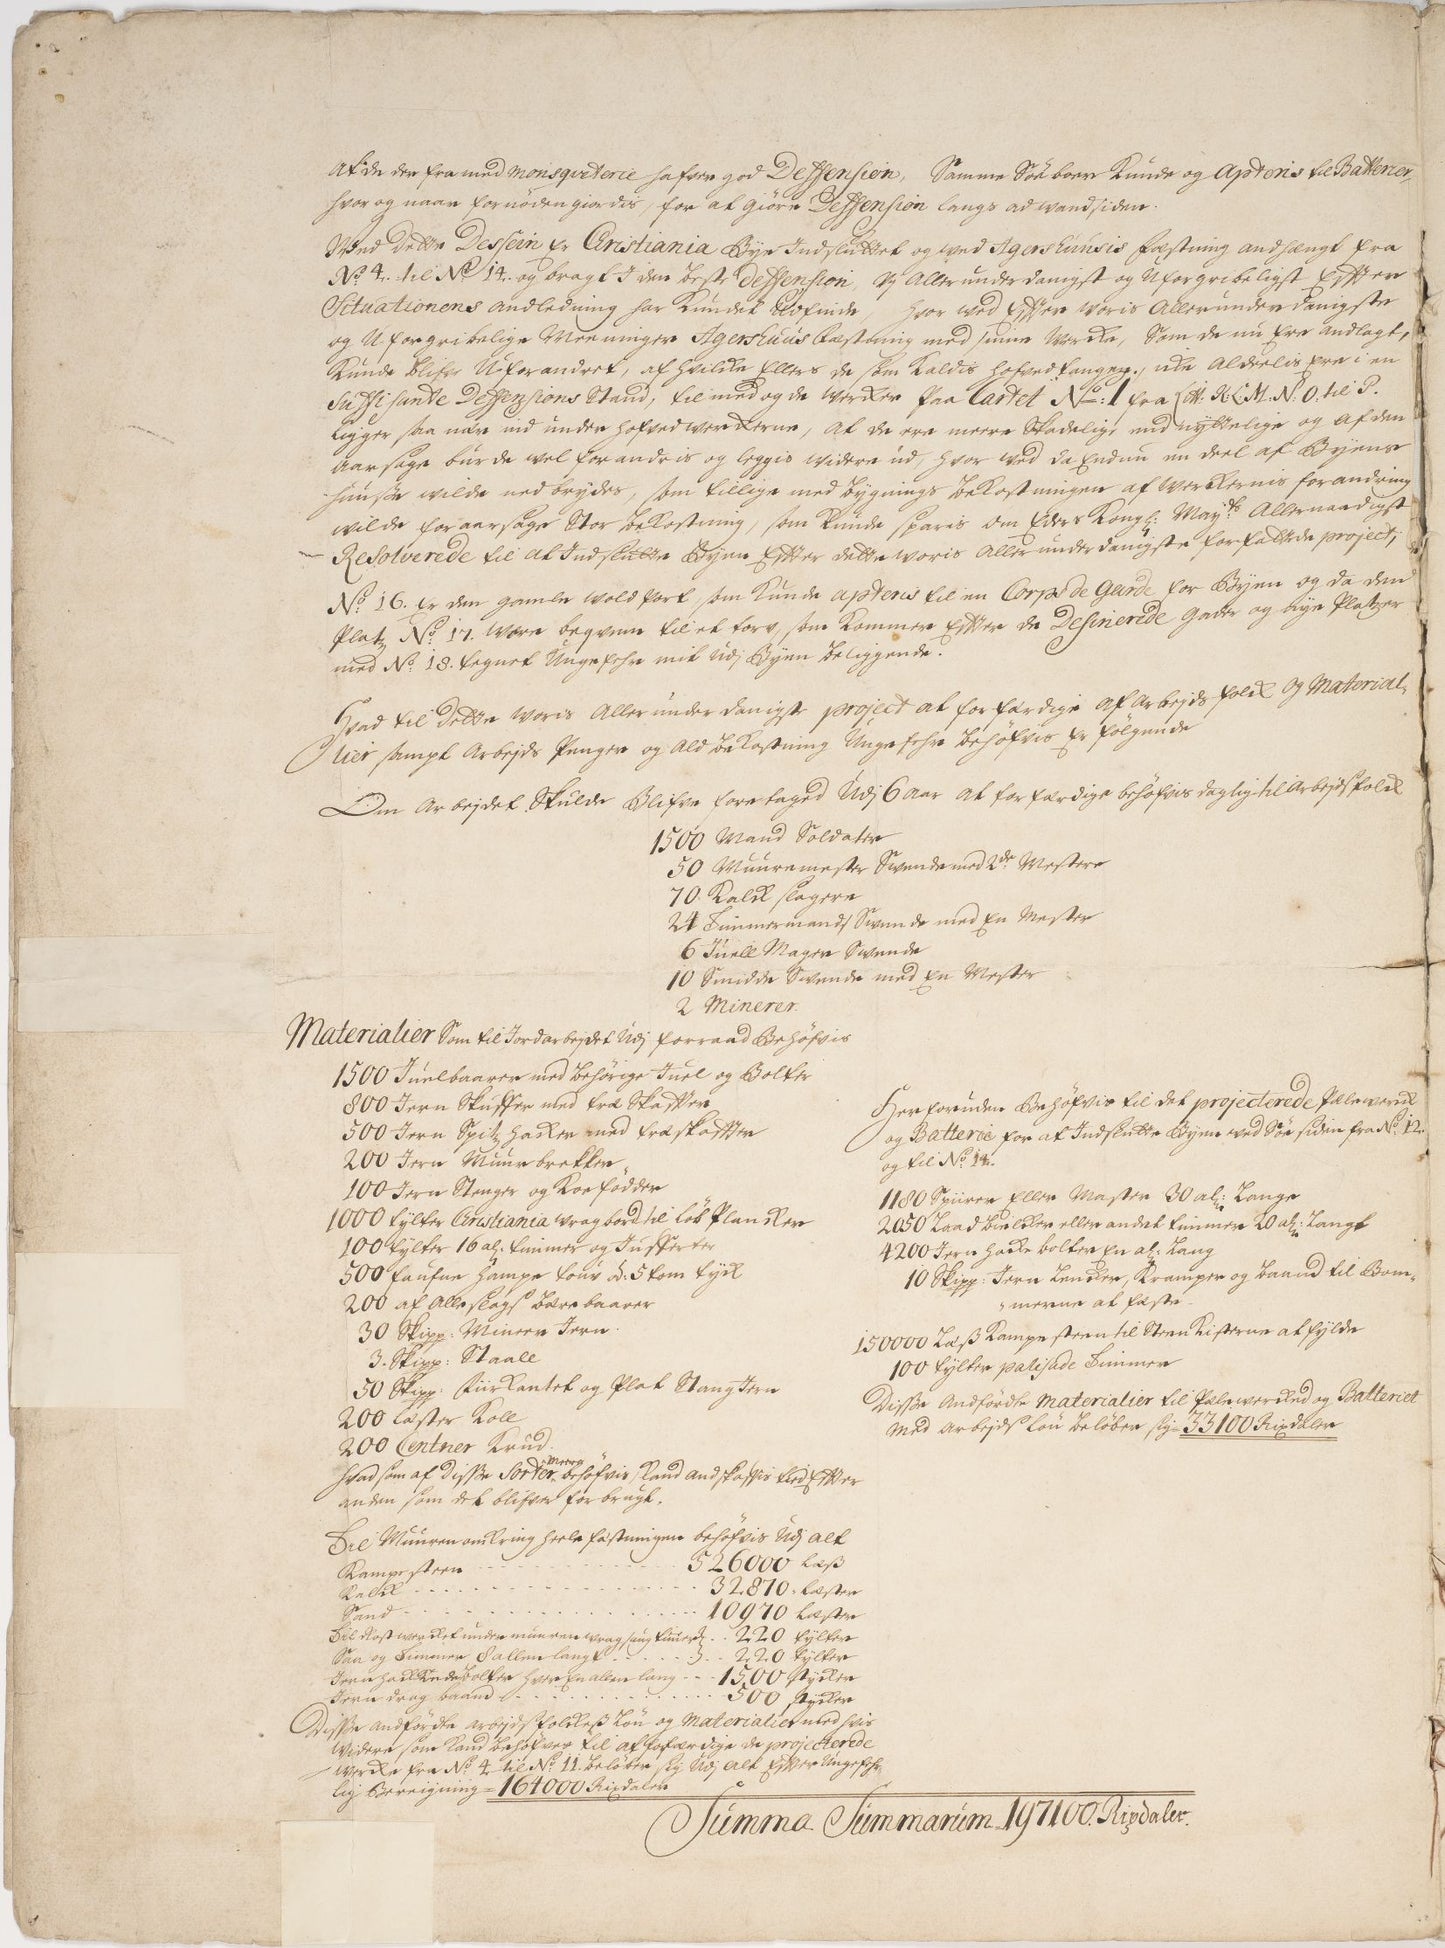 at de der fra med Monsqviterie hafver god Deffension, Samme Söeboer Kunde og Apteris til Batterier,
hvor og naar fornöden giordis, for at giöre Deffension langs ad wandsiden.
Wed dette Dessein er Christiania Bye Indsluttet og wed Agershuusis fæstning andhængt fra
No 4. til No 14. og bragt I den beste Deffension, Vj Allerunderdanigst og Uforgribeligst Effter
Situationens andledning har Kundet Udfinde, hvor ved Effter voris Allerunderdanigste
og Uforgribelige Meeninger Agershuus fæstning med sinne Wercke, Som de nu ere andlagt,
Kunde blifve Uforandret, af hvilcke Ellers de som Kaldis Hofvedtanger, icke Aldeelis ere i en
Suffisante Deffensions Stand, til med og de wercker paa Cartet No: 1 fra Litt. K. L. M. N. O. til P.
Ligger saa nær ind under hofvedwerckerne, at de ere meere Skadelig, end nyttelige og af den
Aarsage burde vel forandris og leggis widere ud, hvor ved da Endnu en deel af Byens
huusse wilde nedbrydes, som tillige med bygnings bekostningen af werckernis forandring
wilde foraarsage Stor bekostning, som Kunde sparis om Eders Kongl: Mayts Allernaadigst
Resolverede til at Indslutte Byen Effter dette voris Allerunderdanigste forfattede project,
No 16. Er den gamle wold port, som Kunde apteris til en Corps de Garde for Byen og da den
Platz No 17. være beqvem til et torv, som Kommer Effter de Desinerede gader og bye Platzer
med No 18. tegnet Ungefehr mit Udj Byen beliggende.
Hvad til dette voris Allerunderdanigste project at forfærdige af Arbejds folck og Material-
lier sampt Arbejds Penger og Ald bekostning Ungefehr behöfvis er fölgende
Om Arbejdet Skulde Blifve foretaged Udj 6 aar at forfærdige behöfvis daglig til Arbejdsfolck
1500 Mand Soldater
50 Muuremester Svende med 2de Mestere
70 Kalck slagere
24 Timmermands Svende med En Mester
6 Juell Mager Svende
10 Smidde Svende med En Mester
2 Minerer.
Materialier Som til Jordarbejdet Udj forraad Behöfvis
1500 Juelbaarer med behörige Juel og Bolter
800 Jern Skuffer med træ Skaffter
500 Jern Spitz hacker med træ skaffter
200 Jern Muur brekker
100 Jern Stenger og Koefödder
1000 tylter Christiania wragbord til löb Plancker
100 tylter 16 al. timmer og Jufferter
500 faufne hampe touv à 5 tom tyck
200 af Alle slags bærebaarer
30 Skipp: Mineer Jern.
3. Skipp: Staall
50 Skipp: fiirkantet og Plat Stang Jern
200 læster Koll
200 Centner Krud.
hvad som af Disse Sorter meere behöfvis kand andskaffis tid Effter
anden som det blifver forbrugt.
Til Muuren omkring heele fæstningen behöfvis Udj alt
Kampesteen 526000 læss
Kalck 32870. læster
Sand 10970 læster
220 tylter
Saa og Timmer 8 allen langt 220 tylter
Jern hackede Bolter hver En allen lang 1500 stycker
Jern drag baand 500 stycker
Disse andförde arbejdsfolckes Lön og Materialier med hvis
widere som kand behöfves til at forfærdige de projecterede
wercke fra No 4 til No 11. beløber sig Udj alt Effter Ungefehr-
lig Bereigning = 164000 Rixdaler
Her foruden Behöfvis til det projecterede Pælewerck
og Batterie for at Indslutte Byen ved Söe siden fra No 12.
og til No 14.
1180 Spiirer Eller Master 30 al: Lange
2050 Laad bielcker eller andet timmer 20 al: Langt
4200 Jern hacke bolter En al: Lang
10 Skipp: Jern Lencker, Kramper og baand til Bom-
merne at fæste.
150000 Læss Kampesteen til Steen Kisterne at fylde
100 tylter palisade Timmer
Disse Andförde Materialier til Pælewercked og Batteriet
Med Arbejds lön beløber sig = 33100 Rixdaler
Summa Summarum 197100. Rixdaler.